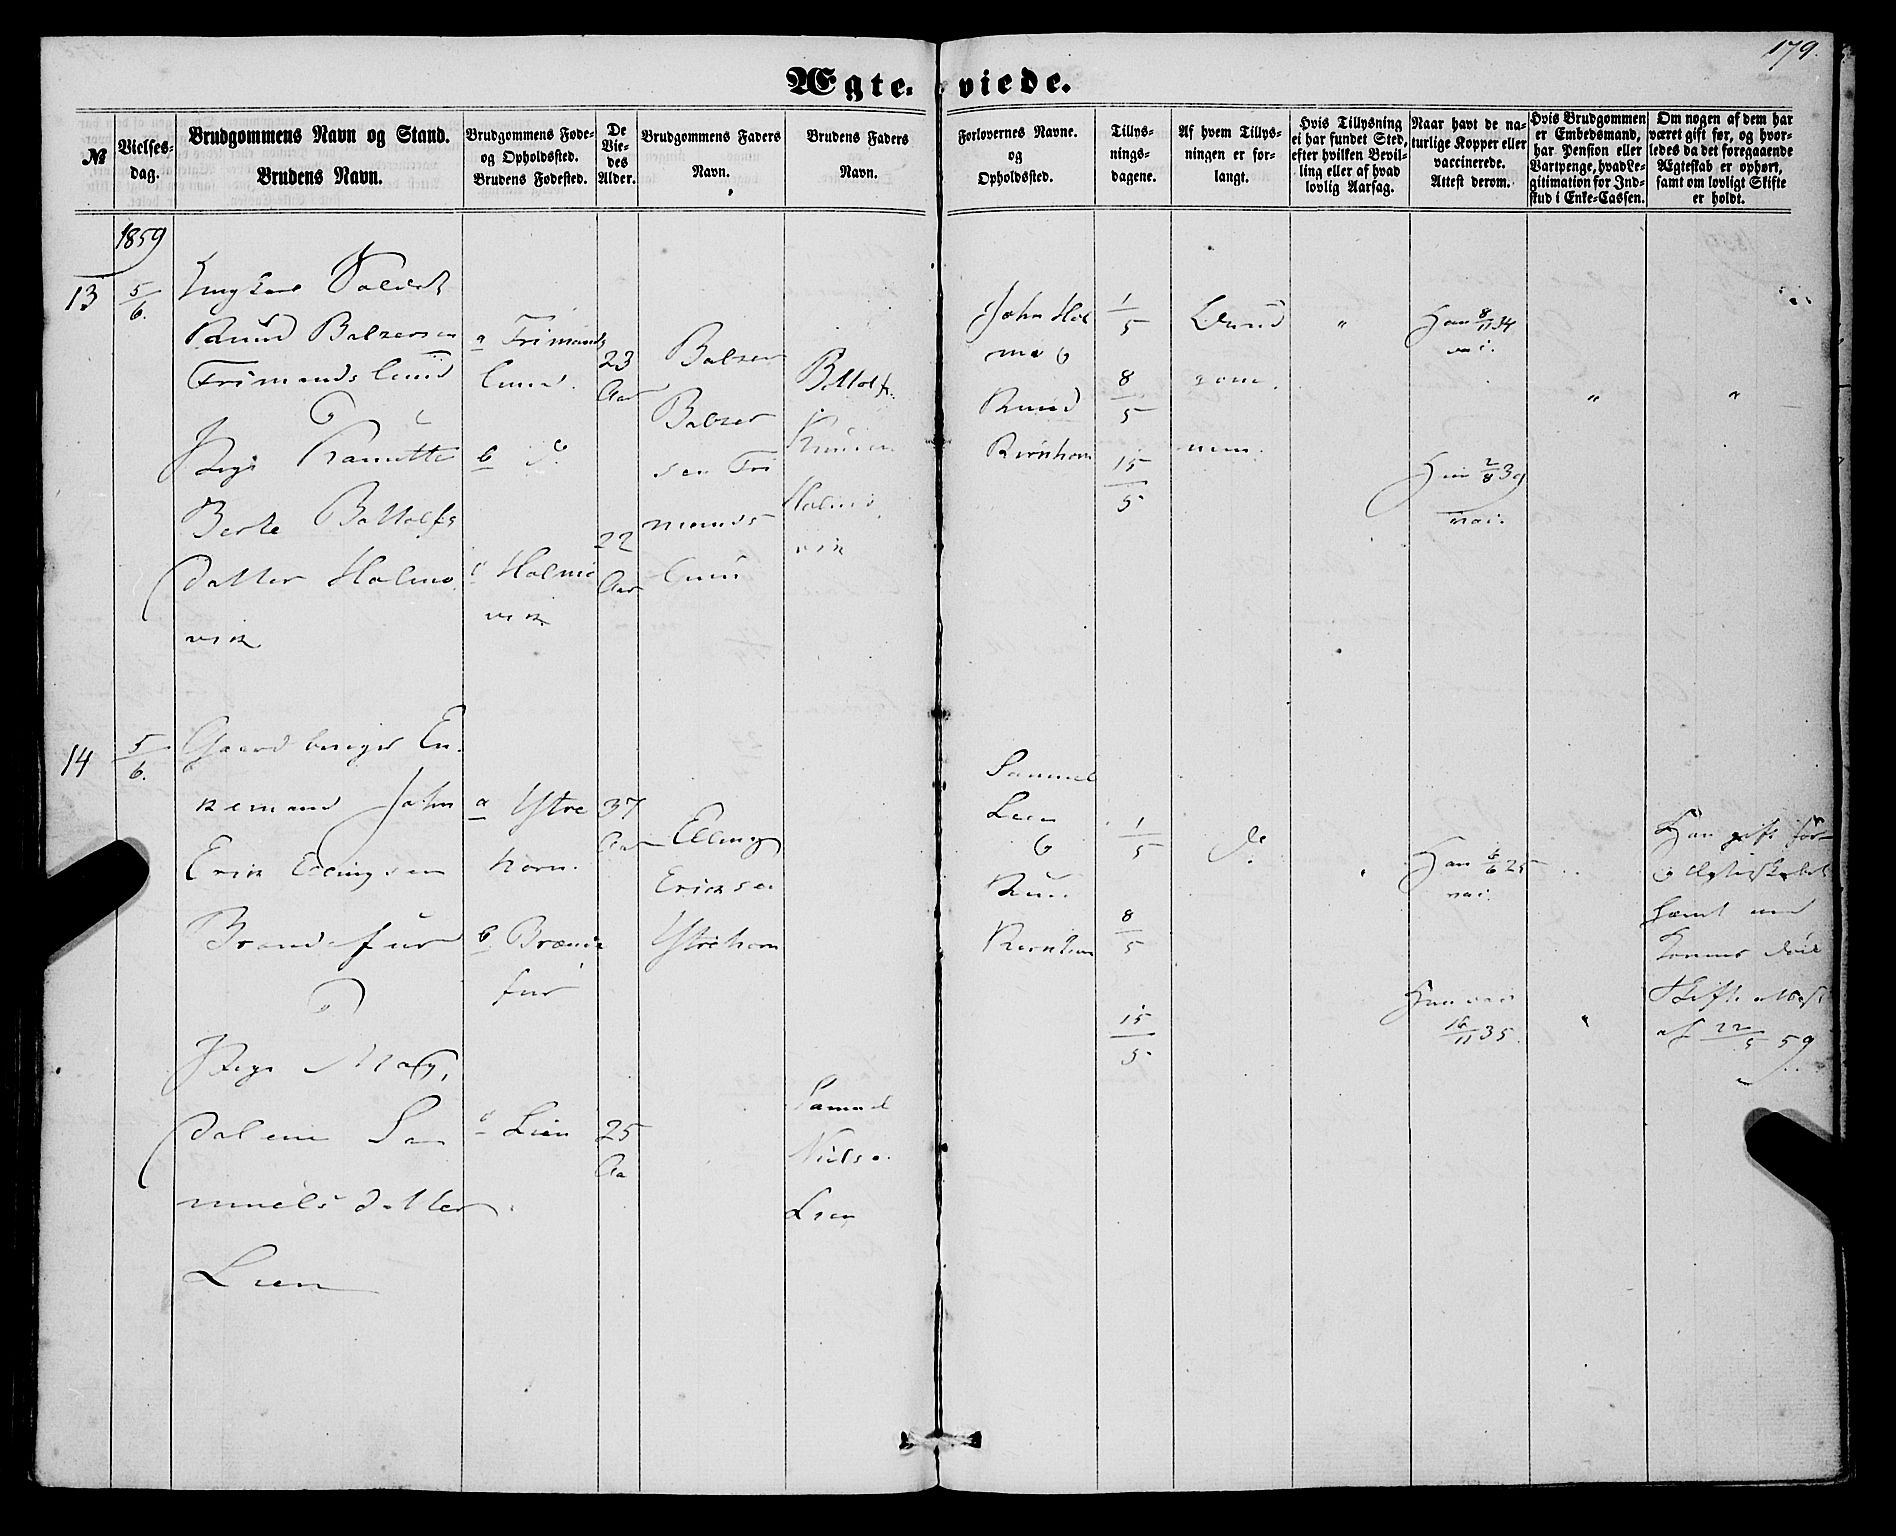 179.
Ægte- viede.
№
Vielses-
dag.
Brudgommens Navn og Stand.
Brudens Navn.
Brudgommens Føde-
og Opholdssted.
Brudens Fødested.
De
Vie-
des
Alder.
Brudgommens Faders
Navn.
Brudens Faders
Navn.
Forlovernes Navne.
og
Opholdssted.
Tillys-
nings-
dagene.
Af hvem Tillys-
ningen er for-
langt.
Hvis Tillysning
ei har fundet Sted,
efter hvilken Bevil-
ling eller af hvad
lovlig Aarsag.
Naar havt de na-
turlige Kopper eller
vaccinerede.
Attest derom.
Hvis Brudgommen
er Embedsmand,
har Pension eller
Vartpenge, hvad Le-
gitimation for Ind-
skud i Enke-Cassen.
Om nogen af dem har
været gift før, og hvor-
ledes da det foregaaende
Ægteskab er ophørt,
samt om lovligt Skifte
er holdt.
1859
13
5/6.
Ungkarl Soldat
Knud Balzersen
Trimandslund
og
Pige
Berte Bottolfs
datter Holme
vik
a Trimands
lund.
b do
c Holme
vik
23
Aar
22
Aar
Balzer
Balzer
sen Tri
mands
lund
Bottolf
Knudsen
Holme
vik
John Hol
me og
Knud
1/5
8/5
15/5
Brud
gom
men.
"
Han 8/11 34
vac.
Hun 2/8 39
vac.
"
"
14
5/6.
Gaardbruger En-
kemand John
Erik Ellingsen
og
Pige Mag-
dalene Sa
muelsdatter
Lien
a Ystre
horn.
b
c Lien
37
Aar
25
Aa
Elling
Ericksen
Ystrehorn
Samuel
Nielse.
Lien
Samuel
Lien
og
Knud
1/5
8/5
15/5
do
Han 25
vac.
Hun vac
35.
"
Han gift før
Ægteskabet
hævet ved
Konens Død
Skifte Attest
af 22/5 59